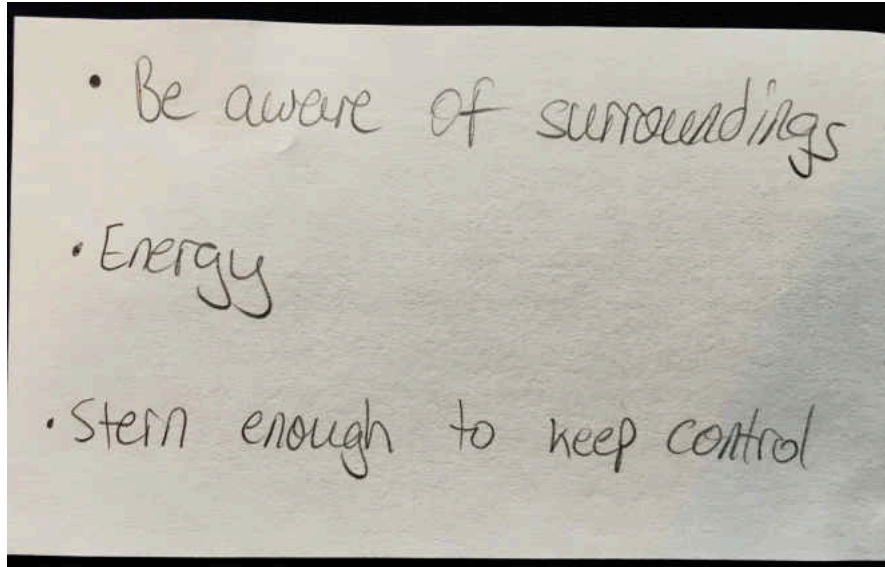 • Be aware of surroundings
• Energy
• Stern enough to keep control